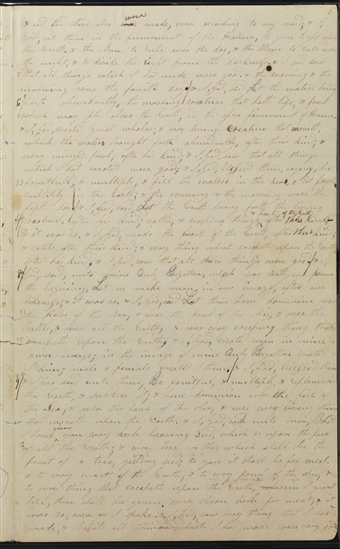 & the stars also were made, even according to my word; & I,
God, set them in the firmament of the Heaven, to give light upon
the Earth, & the Sun to rule over the day, & the Moon to rule over
the night, & to divide the light from the darkness; & I, God saw
that all things which I had made were good; & the evening & the
morning were the fourth day; & I, God, said Let the waters bring
forth abundantly, the moving creature that hath life, & fowl
which may fly above the Earth, in the open firmament of Heaven
& I, God, create great whales, & every living creature that moveth,
which the waters brought forth abundantly, after their kind; &
every winged fowl, after his kind; & I, God, saw that all things
which I had created were good; & I, God, blessed them, saying, be
fruitful, & multiply, & fill the waters in the sea, & let fowl
multiply in the Earth; & the evening & the morning were the
fifth day; & I, God, said Let the Earth bring forth the living
creature, after his kind, cattle, & creeping things, &
& it was so, & I, God, made the beast of the Earth, after their kind,
& cattle, after their kind; & every thing which creepeth upon the Earth
after his kind; & I, God, saw that all these things were good; & I,
God, said, unto mine Only Begotten, which was with me from
the beginning, Let us make man, in our image, after our
likeness; & it was so; & I, God, said Let them have dominion over
the fishes of the sea, & over the fowl of the air, & over the
cattle, & over all the Earth, & over every creeping thing that
creepeth upon the Earth, & I, God, create man in mine
own image, in the image of mine Only Begotten created
I him; male & female created I them; & I, God, blessed them
& I, God said unto them, Be fruitful, & multiply, & replenish
the Earth, & subdue it; & have dominion over the fish of
the Sea, & over the fowl of the Air, & over every living thing
that moveth upon the Earth, & I, God, said unto man, Behold
I have given you every herb bearing seed, which is upon the face
of all the Earth; & every tree in the which shall be the
fruit of a tree, yielding seed, to you it shall be for meat,
& to every beast of the Earth, & to every fowl of the Air, &
to every thing that creepeth upon the Earth, wherein I grant
life, there shall be given every clean herb for meat; & it
was so, even as I spake; & I, God, saw every thing that I had
made, & behold all things which I had made were very good